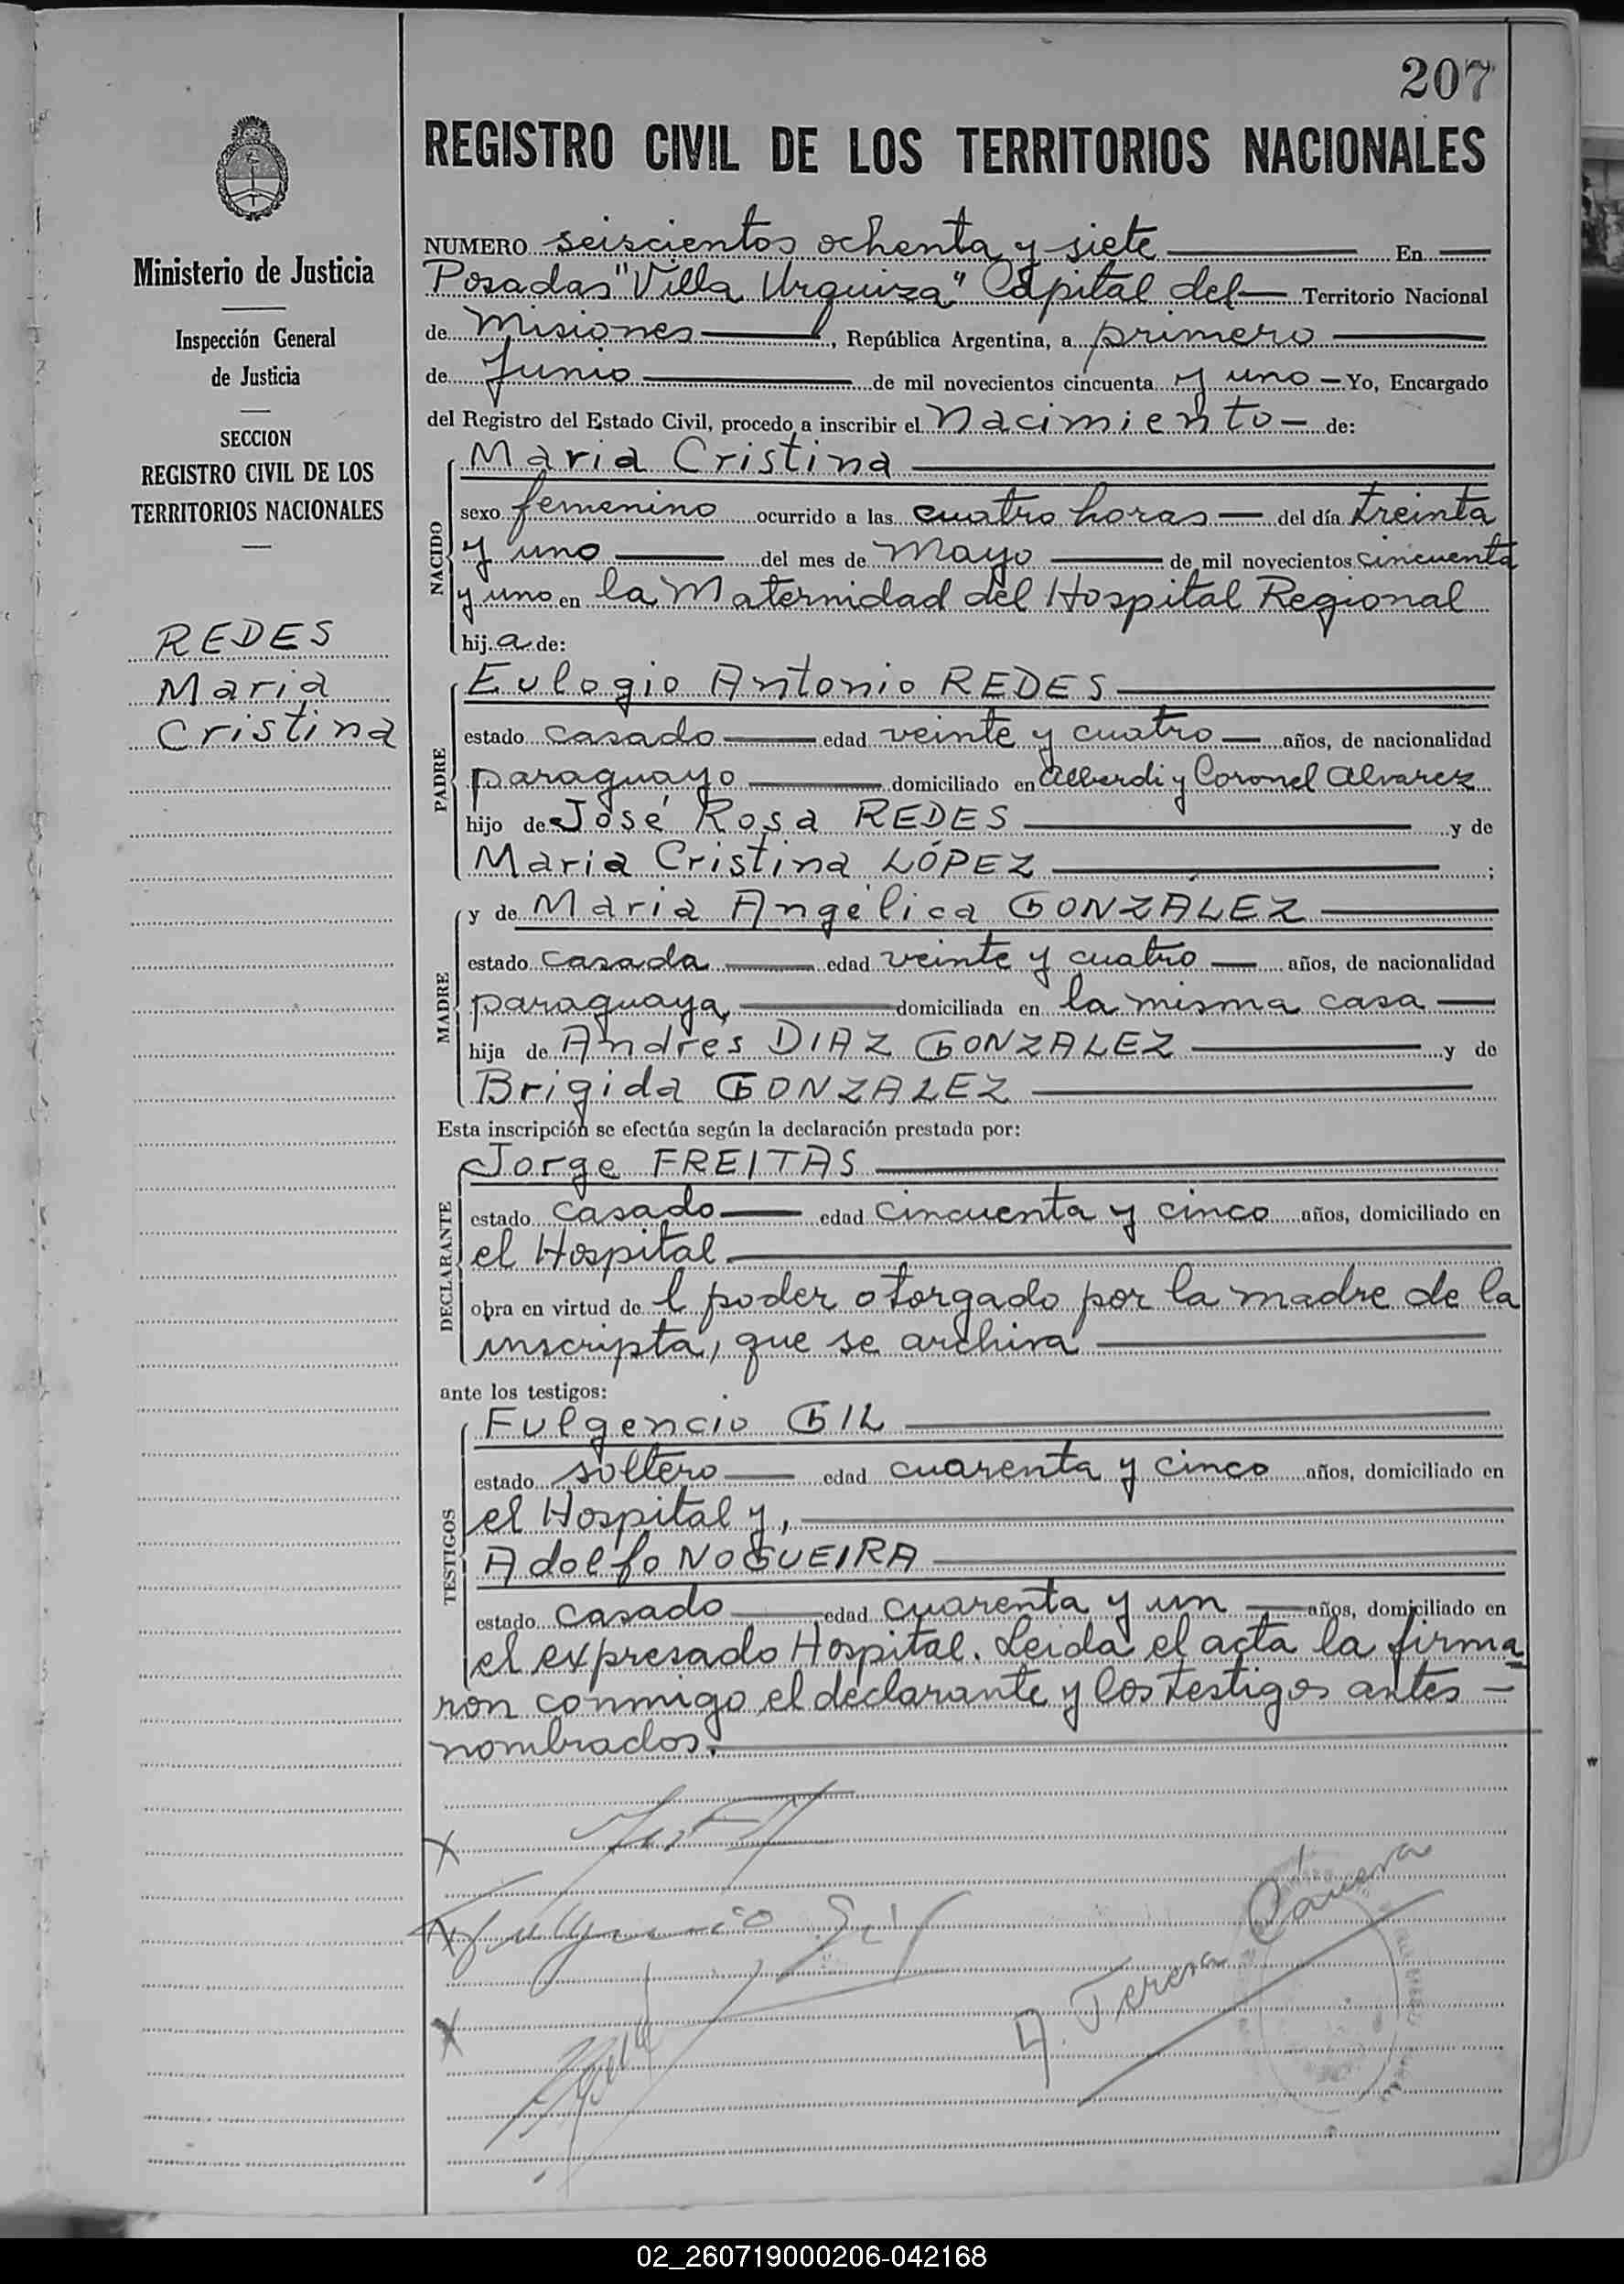 207
REGISTRO CIVIL DE LOS TERRITORIOS NACIONALES
Ministerio de Justicia
Inspección General
de Justicia
SECCION
REGISTRO CIVIL DE LOS
TERRITORIOS NACIONALES
REDES
Maria
Cristina
NUMERO seiscientos ochenta y siete En
Posadas "Villa Urquiza" Capital del Territorio Nacional
de Misiones, República Argentina, a primero
de Junio de mil novecientos cincuenta y uno Yo, Encargado
del Registro del Estado Civil, procedo a inscribir el Nacimiento de:
NACIDO
Maria Cristina
sexo femenino ocurrido a las cuatro horas del día treinta
y uno del mes de Mayo de mil novecientos cincuenta
y uno en la Maternidad del Hospital Regional
hija de:
PADRE
Eulogio Antonio REDES
estado casado edad veinte y cuatro años, de nacionalidad
paraguayo domiciliado en Alberdi y Coronel Alvarez
hijo de José Rosa REDES y de
Maria Cristina LÓPEZ ;
MADRE
y de Maria Angélica GONZÁLEZ
estado casada edad veinte y cuatro años, de nacionalidad
paraguaya, domiciliada en la misma casa
hija de Andrés DIAZ GONZALEZ y de
Brigida GONZALEZ
Esta inscripción se efectúa según la declaración prestada por:
DECLARANTE
Jorge FREITAS
estado casado edad cincuenta y cinco años, domiciliado en
el Hospital
obra en virtud de l poder otorgado por la madre de la
inscripta, que se archiva
ante los testigos:
TESTIGOS
Fulgencio GIL
estado soltero edad cuarenta y cinco años, domiciliado en
el Hospital y,
Adolfo NOGUEIRA
estado casado edad cuarenta y un años, domiciliado en
el expresado Hospital. Leida el acta la firma
ron conmigo el declarante y los testigos antes -
nombrados.
Fulgencio Gil
A. Teresa Cánena
02_260719000206-042168